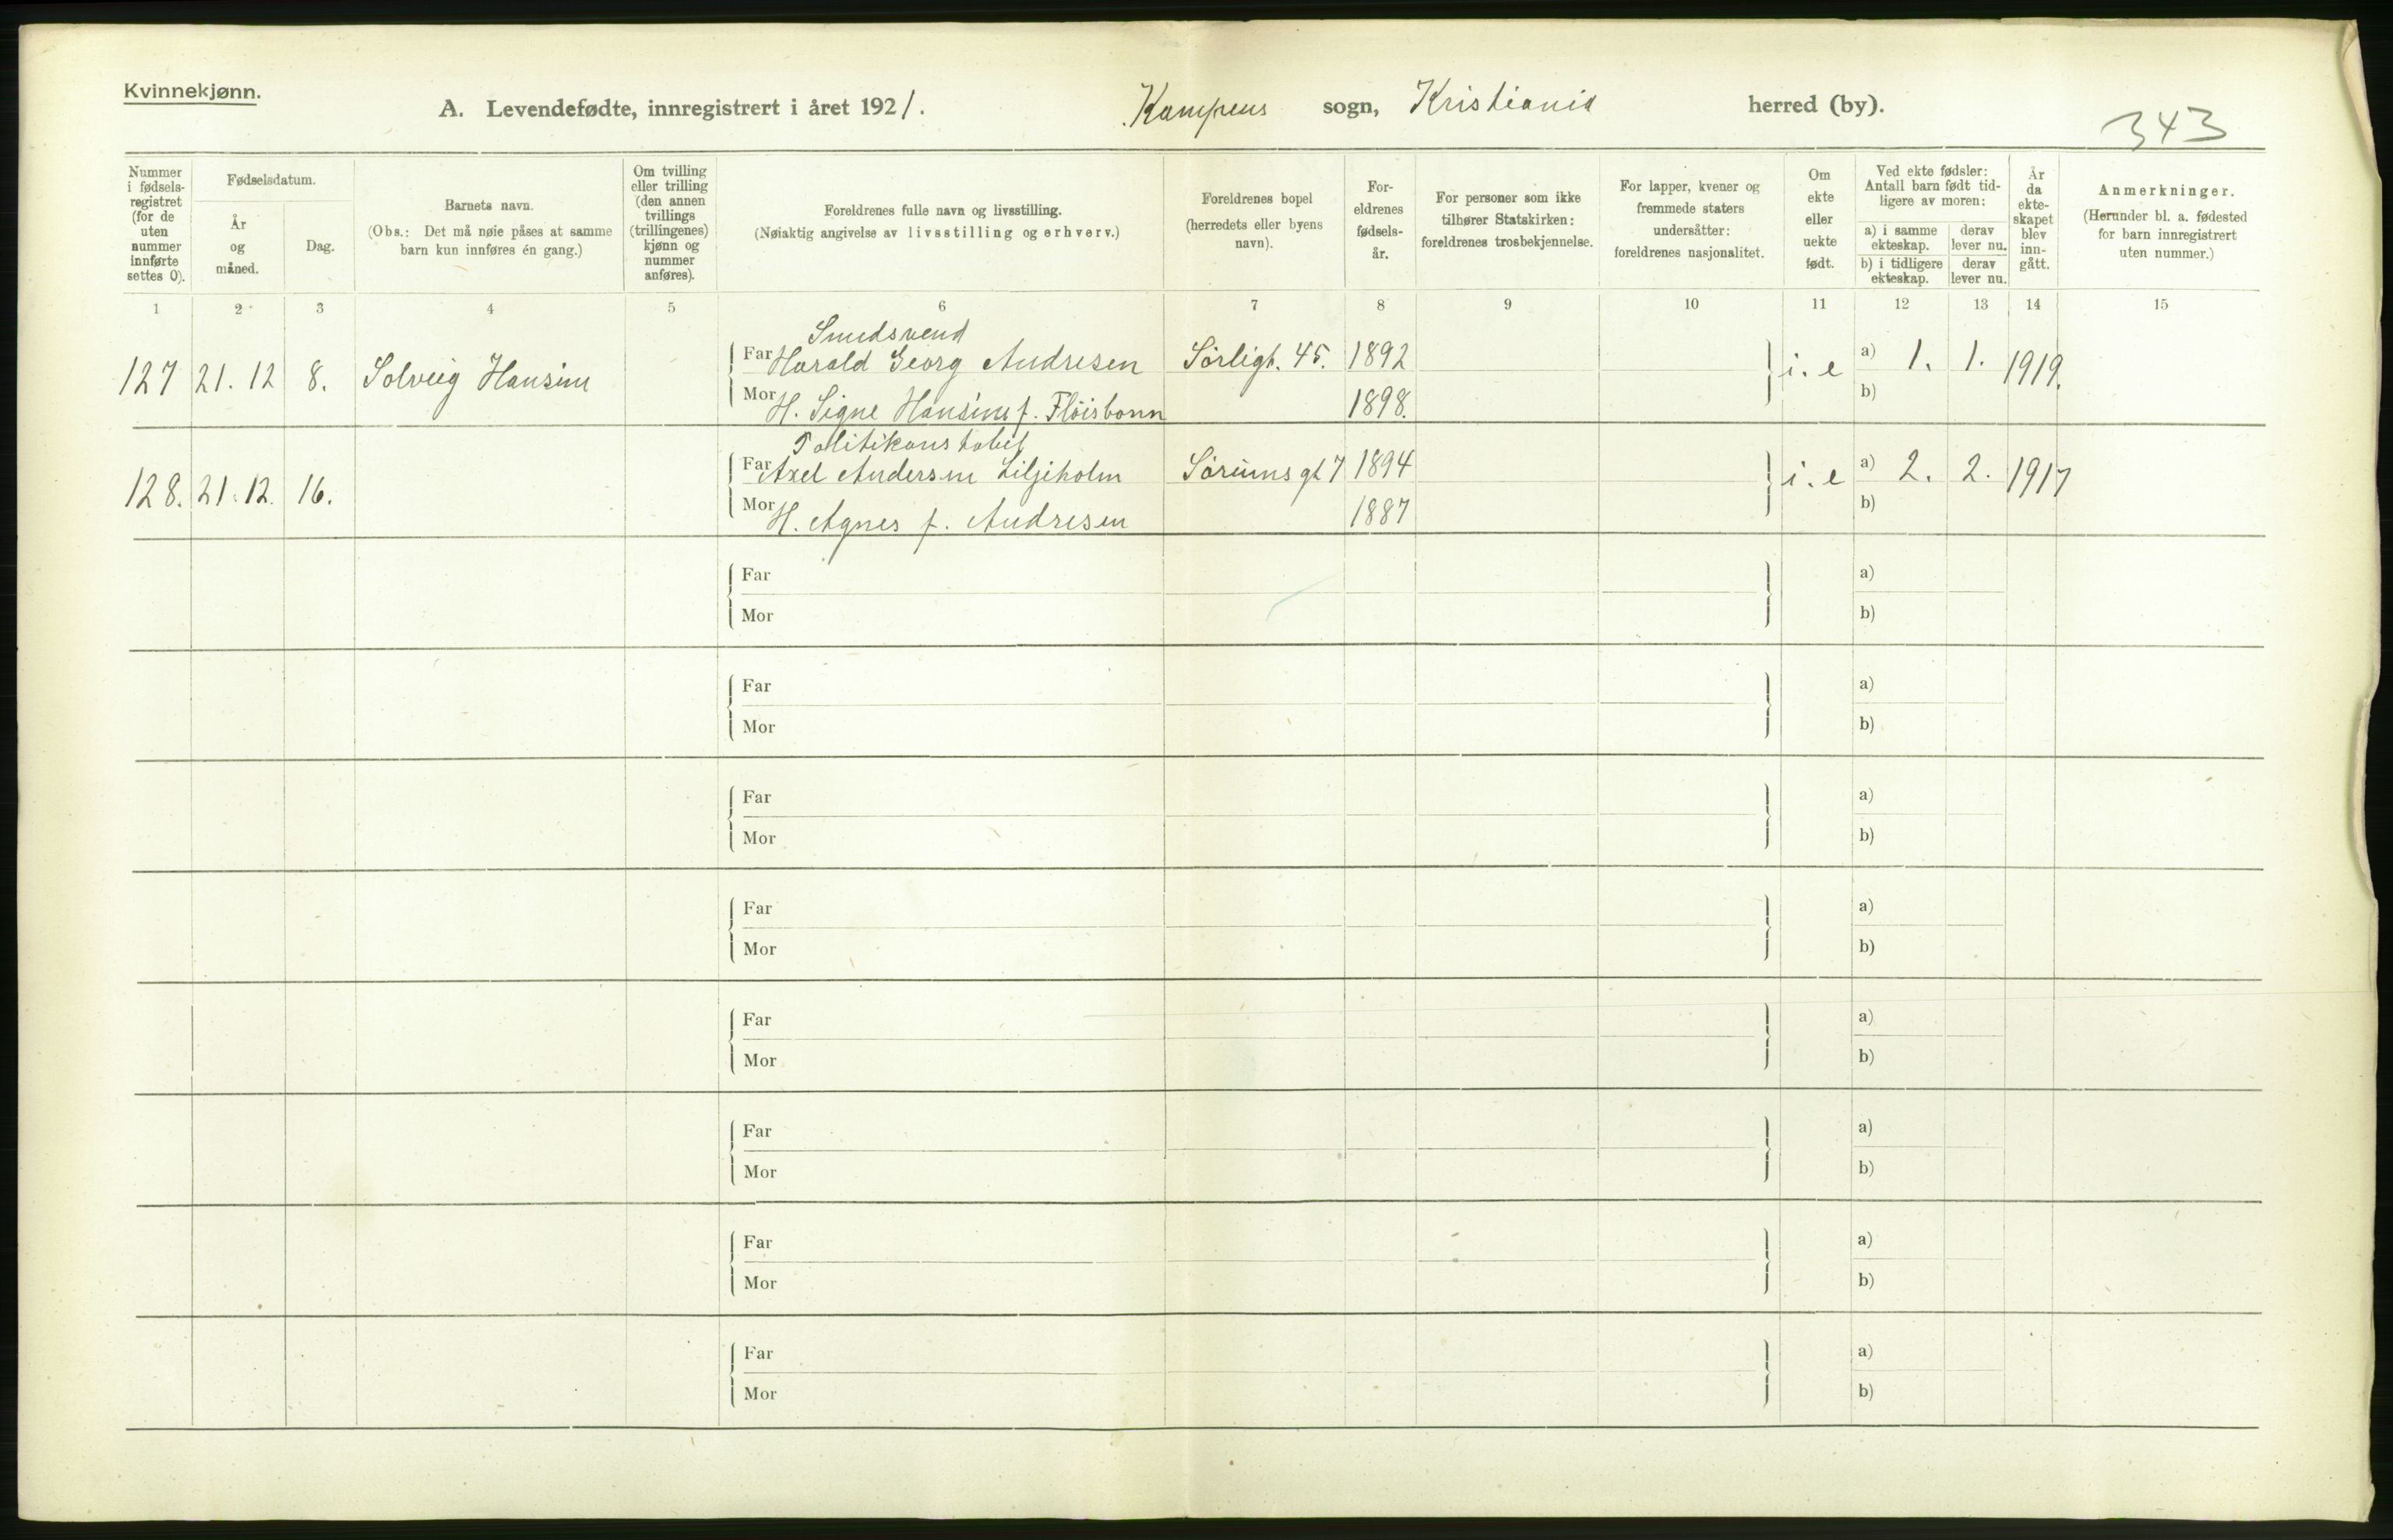 Kvinnekjønn.
A. Levendefødte, innregistrert i året 1921. Kampens sogn, Kristiania herred (by).
343
Nummer i fødselsregistret (for de uten nummer innførte settes 0).
Fødselsdatum.
År og måned.
Dag.
Barnets navn.
(Obs.: Det må nøie påses at samme barn kun innføres én gang.)
Om tvilling eller trilling (den annen tvillings (trillingenes) kjønn og nummer anføres).
Foreldrenes fulle navn og livsstilling.
(Nøiaktig angivelse av livsstilling og erhverv.)
Foreldrenes bopel
(herredets eller byens navn).
Foreldrenes fødselsår.
For personer som ikke tilhører Statskirken: foreldrenes trosbekjennelse.
For lapper, kvener og fremmede staters undersåtter: foreldrenes nasjonalitet.
Om ekte eller uekte født.
Ved ekte fødsler: Antall barn født tidligere av moren:
a) i samme ekteskap.
derav lever nu.
b) i tidligere ekteskap.
derav lever nu.
År da ekteskapet blev inngått.
Anmerkninger.
(Herunder bl. a. fødested for barn innregistrert uten nummer.)
1 2 3 4 5 6 7 8 9 10 11 12 13 14 15
Smedsvend
Far Harald Georg Andresen Sørligt. 45. 1892
127 21. 12 8. Solveig Hansine i. e a) 1. 1. 1919.
Mor H. Signe Hansine f. Fløisbonn 1898. b)
Politikonstabel
Far Axel Andersen Liljeholm Sørumsgt 7 1894
128. 21. 12. 16. i. e a) 2. 2. 1917
Mor H. Agnes f. Andresen 1887 b)
Far a)
Mor b)
Far a)
Mor b)
Far a)
Mor b)
Far a)
Mor b)
Far a)
Mor b)
Far a)
Mor b)
Far a)
Mor b)
Far a)
Mor b)